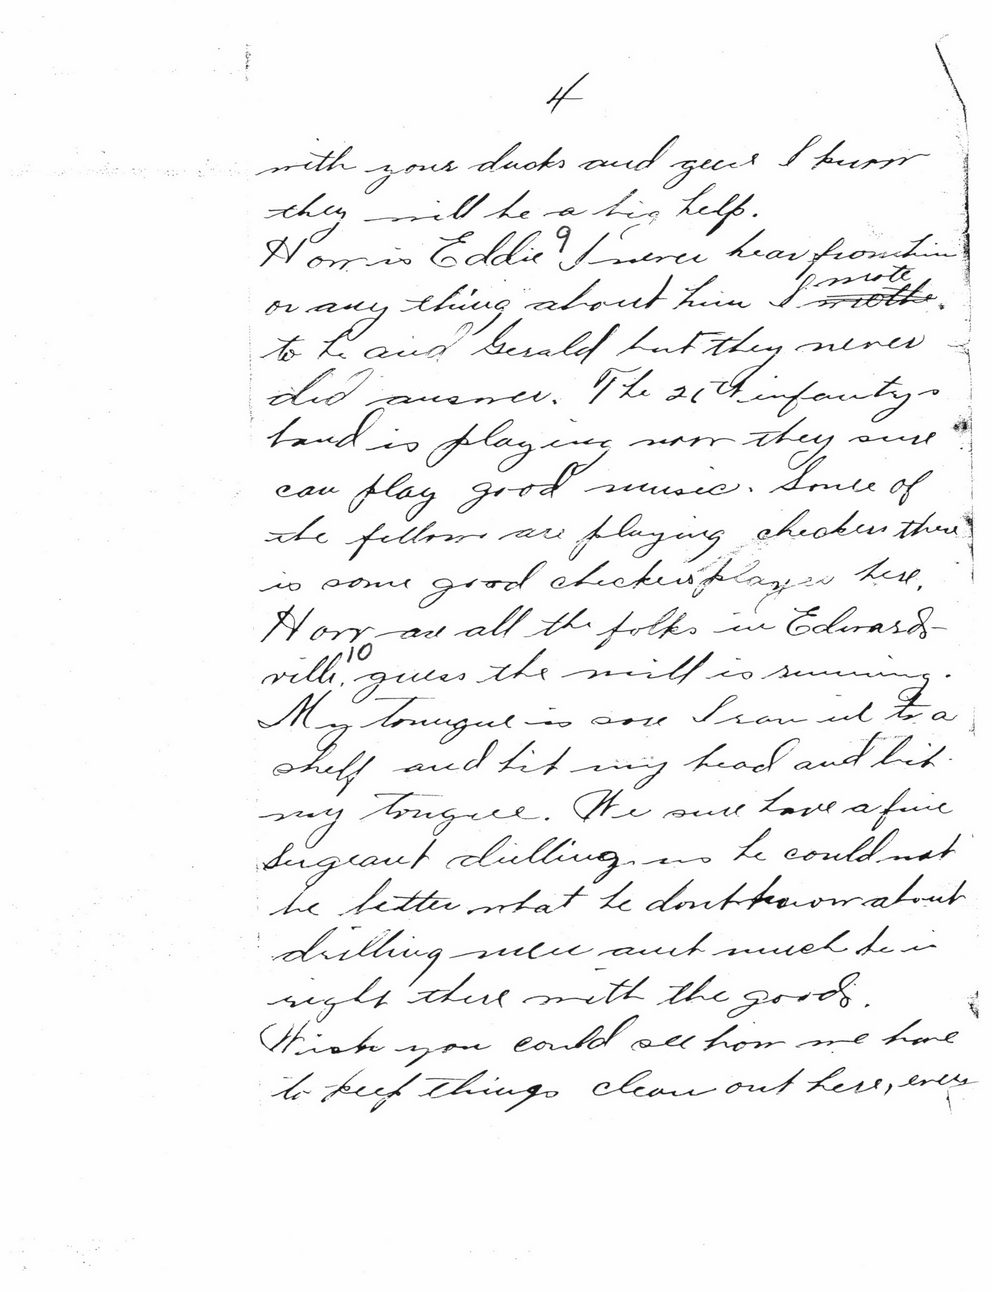 4
with your ducks and geese I know
they will be a big help.
How is Eddie 9 I never hear from him
wrote
or any thing about him I wrothe.
to he and Gerald but they never
did answer. The 26th infantrys
band is playing now they sure
can play good music. Some of
the fellows are playing checkers there
is some good checkers players here.
How are all the folks in Edwards-
ville. 10 guess the mill is running.
My tounge is sore I ran in to a
shelf and hit my head and bit
my tongue. We sure have a fine
sergeant drilling us he could not
be better what he dont know about
drilling men aint much he is
right there with the goods.
Wish you could see how we have
to keep things clean out here, every